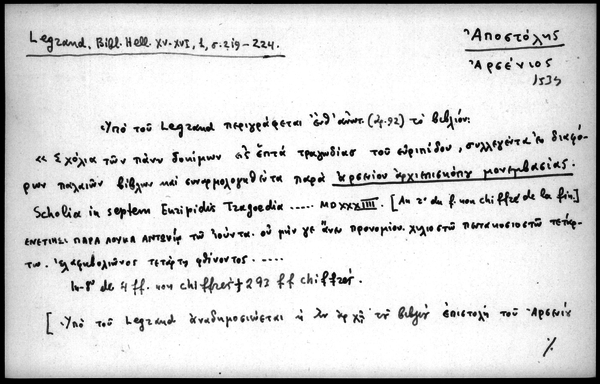 Legrand, Bibl. Hell. XV-XVI, 1, σ. 219-224.
Ἀποστόλης
Ἀρσένιος
1534
Ὑπὸ τοῦ Legrand περιγράφεται ἐνθ' ἀνωτ. (ἀρ. 92) τὸ βιβλίον:
«Σχόλια τῶν πάνυ δοκίμων εἰς ἑπτὰ τραγωδίας τοῦ εὐριπίδου, συλλεγέντα ἐκ διαφό-
ρων παλαιῶν βίβλων καὶ συναρμολογηθέντα παρὰ ἀρσενίου ἀρχιεπισκόπου μονεμβασίας.
Scholia in septem Euripidis Tragoedia ..... MDXXXIIII. [Au r° du f. non chiffré de la fin]
ΕΝΕΤΙΗΣΙ ΠΑΡΑ ΛΟΥΚΑ ΑΝΤΩΝΙΩ τῶ ἰούντα. οὐ μήν γε ἄνευ προνομίου. χιλιοστῶ πεντακοσιοστῶ τετάρ-
τω. ἐλαφηβολιῶνος τετάρτη φθίνοντος.....
In-8° de 4 ff. non chiffrés + 293 ff chiffrés.
[Ὑπὸ τοῦ Legrand ἀναδημοσιεύεται ἡ ἐν ἀρχῇ τοῦ βιβλίου ἐπιστολὴ τοῦ Ἀρσενίου
%